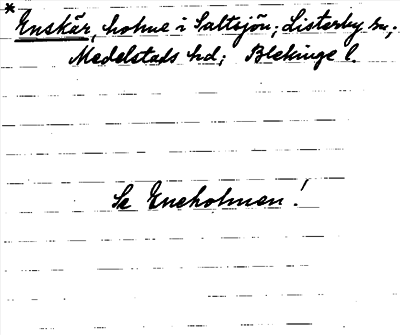 * Enskär, holme i Saltsjön; Listerby sn;
Medelstads hd; Blekinge l.
Se Eneholmen!